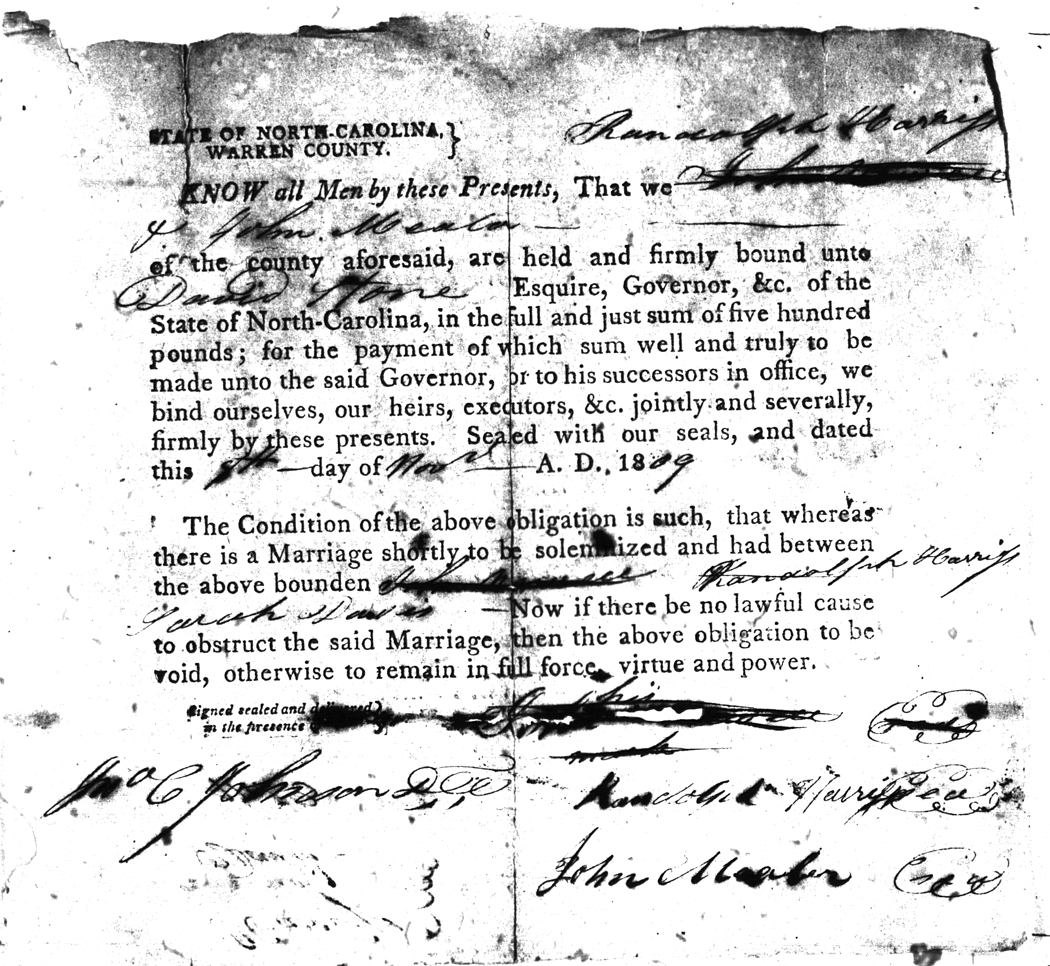 STATE OF NORTH-CAROLINA,
WARREN COUNTY.
Randolph Harriss
KNOW all Men by these Presents, That we
& John
of the county aforesaid, are held and firmly bound unto
David Stone Esquire, Governor, &c. of the
State of North-Carolina, in the full and just sum of five hundred
pounds; for the payment of which sum well and truly to be
made unto the said Governor, or to his successors in office, we
bind ourselves, our heirs, executors, &c. jointly and severally,
firmly by these presents. Sealed with our seals, and dated
this day of Novr A. D., 1809
The Condition of the above obligation is such, that whereas
there is a Marriage shortly to be solemnized and had between
the above bounden Randolph Harriss
Sarah Davis Now if there be no lawful cause
to obstruct the said Marriage, then the above obligation to be
void, otherwise to remain in full force, virtue and power.
Signed sealed and delivered
in the presence
his
mark
Jno C Johnson
Randolph Harriss
John